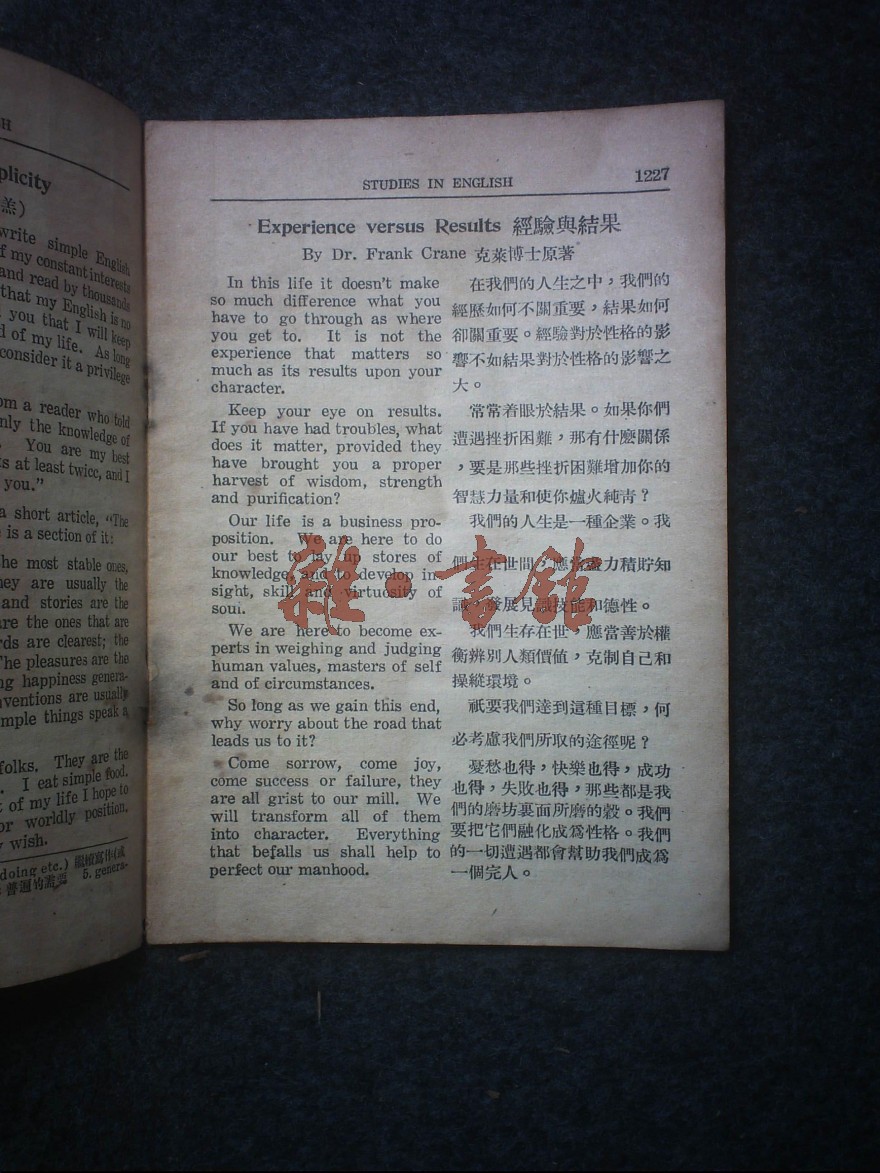 H
plicity
羔)
write simple English
f my constant interests
and read by thousands
that my English is no
you that I will keep
d of my life. As long
consider it a privilege
om a reader who told
nly the knowledge of
You are my best
s at least twice, and I
you."
a short article, "The
e is a section of it:
he most stable ones,
hey are usually the
and stories are the
are the ones that are
rds are clearest; the
The pleasures are the
ng happiness genera-
ventions are usually
mple things speak a
folks. They are the
. I eat simple food.
t of my life I hope to
or worldly position,
y wish.
doing etc.)
5. genera-
STUDIES IN ENGLISH 1227
Experience versus Results 經驗與結果
By Dr. Frank Crane 克萊博士原著
In this life it doesn't make
so much difference what you
have to go through as where
you get to. It is not the
experience that matters so
much as its results upon your
character.
Keep your eye on results.
If you have had troubles, what
does it matter, provided they
have brought you a proper
harvest of wisdom, strength
and purification?
Our life is a business pro-
position. We are here to do
our best to lay up stores of
knowledge, and to develop in-
sight, skill and virtuosity of
soui.
We are here to become ex-
perts in weighing and judging
human values, masters of self
and of circumstances.
So long as we gain this end,
why worry about the road that
leads us to it?
Come sorrow, come joy,
come success or failure, they
are all grist to our mill. We
will transform all of them
into character. Everything
that befalls us shall help to
perfect our manhood.
在我們的人生之中,我們的
經歷如何不關重要,結果如何
卻關重要。經驗對於性格的影
響不如結果對於性格的影響之
大。
常常着眼於結果。如果你們
遭遇挫折困難,那有什麼關係
,要是那些挫折困難增加你的
智慧力量和使你爐火純靑?
我們的人生是一種企業。我
們生在世間,應當盡力積貯知
識,發展見識技能和德性。
我們生存在世,應當善於權
衡辨別人類價値,克制自己和
操縱環境。
祇要我們達到這種目標,何
必考慮我們所取的途徑呢?
憂愁也得,快樂也得,成功
也得,失敗也得,那些都是我
們的磨坊裏面所磨的穀。我們
要把它們融化成爲性格。我們
的一切遭遇都會幫助我們成爲
一個完人。
雜·書館